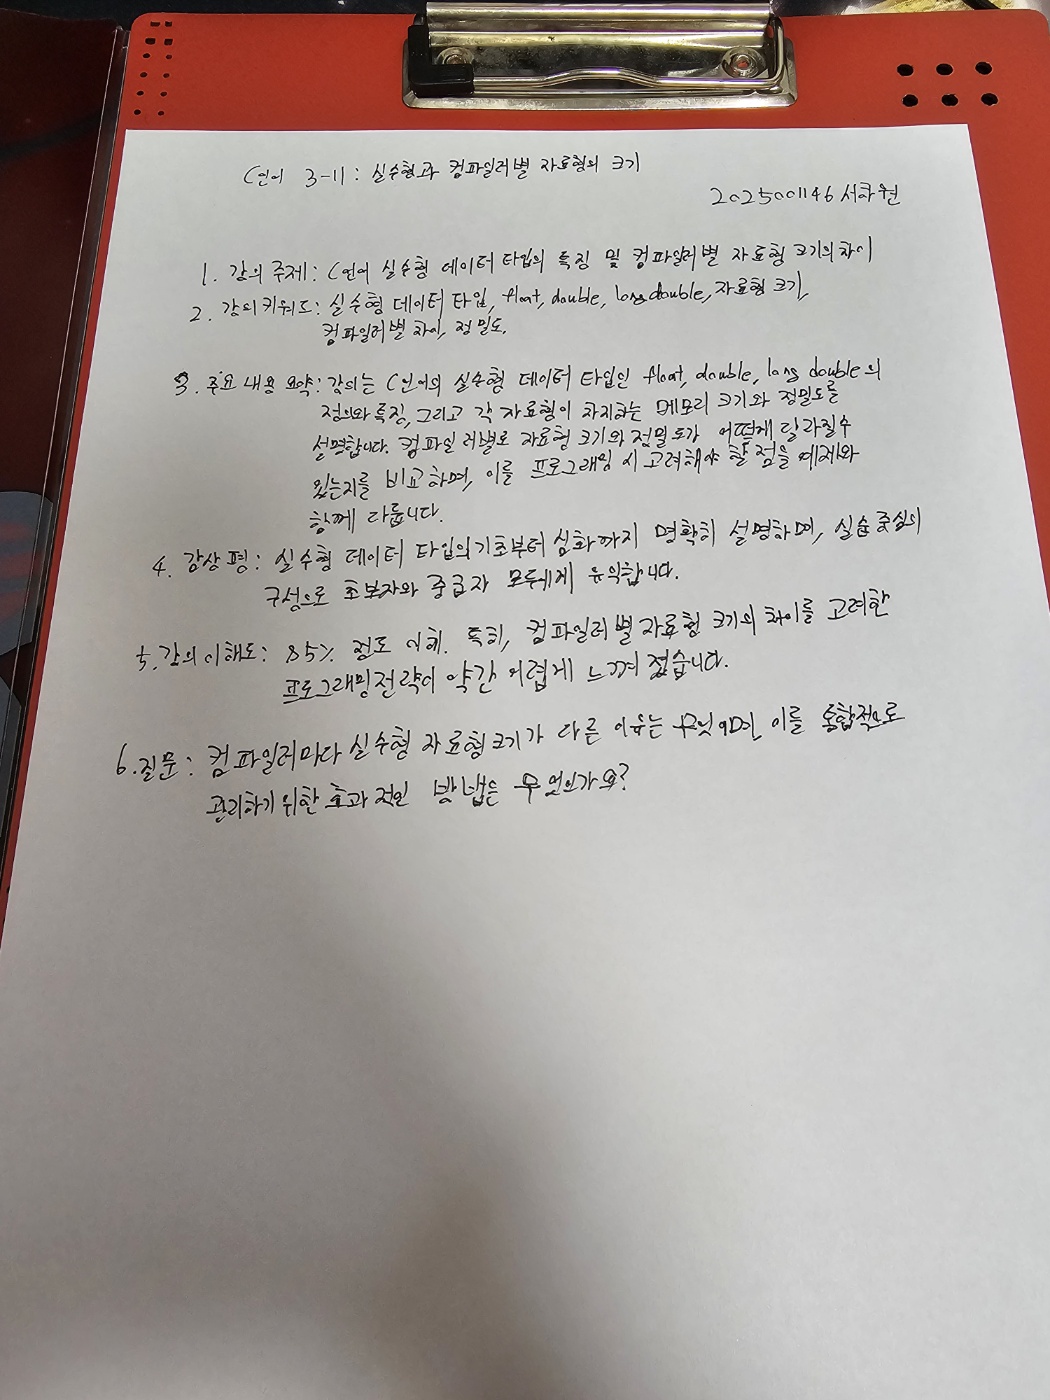 C언어 3-11: 실수형과 컴파일러별 자료형의 크기
2025001146 서주원
1. 강의 주제: C언어 실수형 데이터 타입의 특징 및 컴파일러별 자료형 크기의 차이
2. 강의 키워드: 실수형 데이터 타입, float, double, long double, 자료형 크기,
컴파일러별 차이, 정밀도.
3. 주요 내용 요약: 강의는 C언어의 실수형 데이터 타입인 float, double, long double의
정의와 특징, 그리고 각 자료형이 차지하는 메모리 크기와 정밀도를
설명합니다. 컴파일러별로 자료형 크기와 정밀도가 어떻게 달라질수
있는지를 비교하며, 이를 프로그래밍 시 고려해야 할 점을 예제와
함께 다룹니다.
4. 감상평: 실수형 데이터 타입의 기초부터 심화까지 명확히 설명하며, 실습 중심의
구성으로 초보자와 중급자 모두에게 유익합니다.
5. 강의 이해도: 85% 정도 이해. 특히, 컴파일러별 자료형 크기의 차이를 고려한
프로그래밍전략이 약간 어렵게 느껴졌습니다.
6. 질문: 컴파일러마다 실수형 자료형크기가 다른 이유는 무엇이며, 이를 통합적으로
관리하기 위한 효과적인 방법은 무엇인가요?